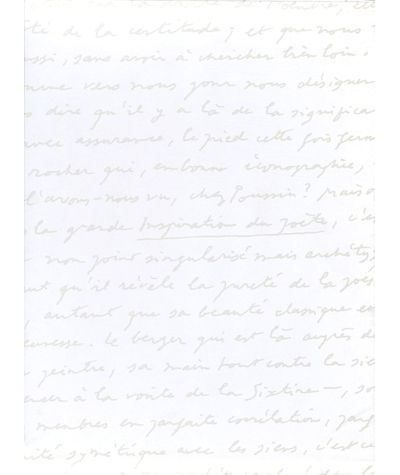 té de la certitude ; et que nous
ussi, sans avoir à chercher très loin.
vers nous pour nous désigner
dire qu'il y a là de la significa
avec assurance, le pied cette fois ferm
rocher qui, en bonne iconographie,
l'avons-nous vu, chez Poussin ? Mais
la grande Inspiration du poète, c'es
non point singularisé mais
qu'il révèle la pureté de la poés
, autant que sa beauté classique en
eunesse. Le berger qui est là auprès de
peintre, sa main tout contre la sie
penser à la voûte de la Sixtine —, so
membres en parfaite corrélation,
ité symétrique avec les siens, c'est ce